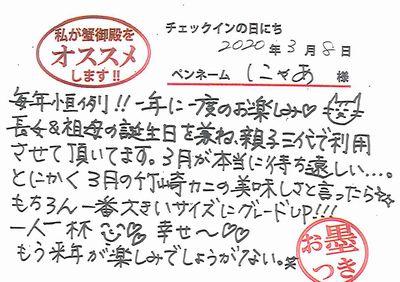 私が蟹御殿を
オススメ
します!!
チェックインの日にち
2020年3月8日
ペンネーム にゃあ 様
毎年恒例!!一年に一度のお楽しみ♡
長女&祖母の誕生日を兼ね、親子三代で利用
させて頂いてます。3月が本当に待ち遠しい…。
とにかく3月の竹崎カニの美味しさと言ったら☆☆
もちろん一番大きいサイズにグレードUP!!!
一人一杯 幸せ〜♡♡
もう来年が楽しみでしょうがない。
お墨
つき